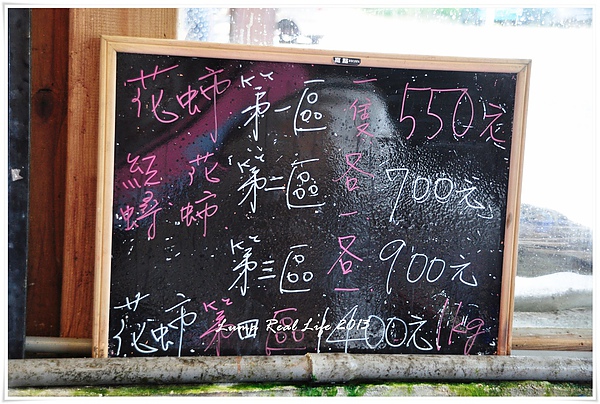 花蚋 第一區 一隻 550元
紅蟳 花蚋 第二區 各一 700元
第三區 各一 900元
花蚋 第四區 1400元 1kg
Lump Real Life 2013